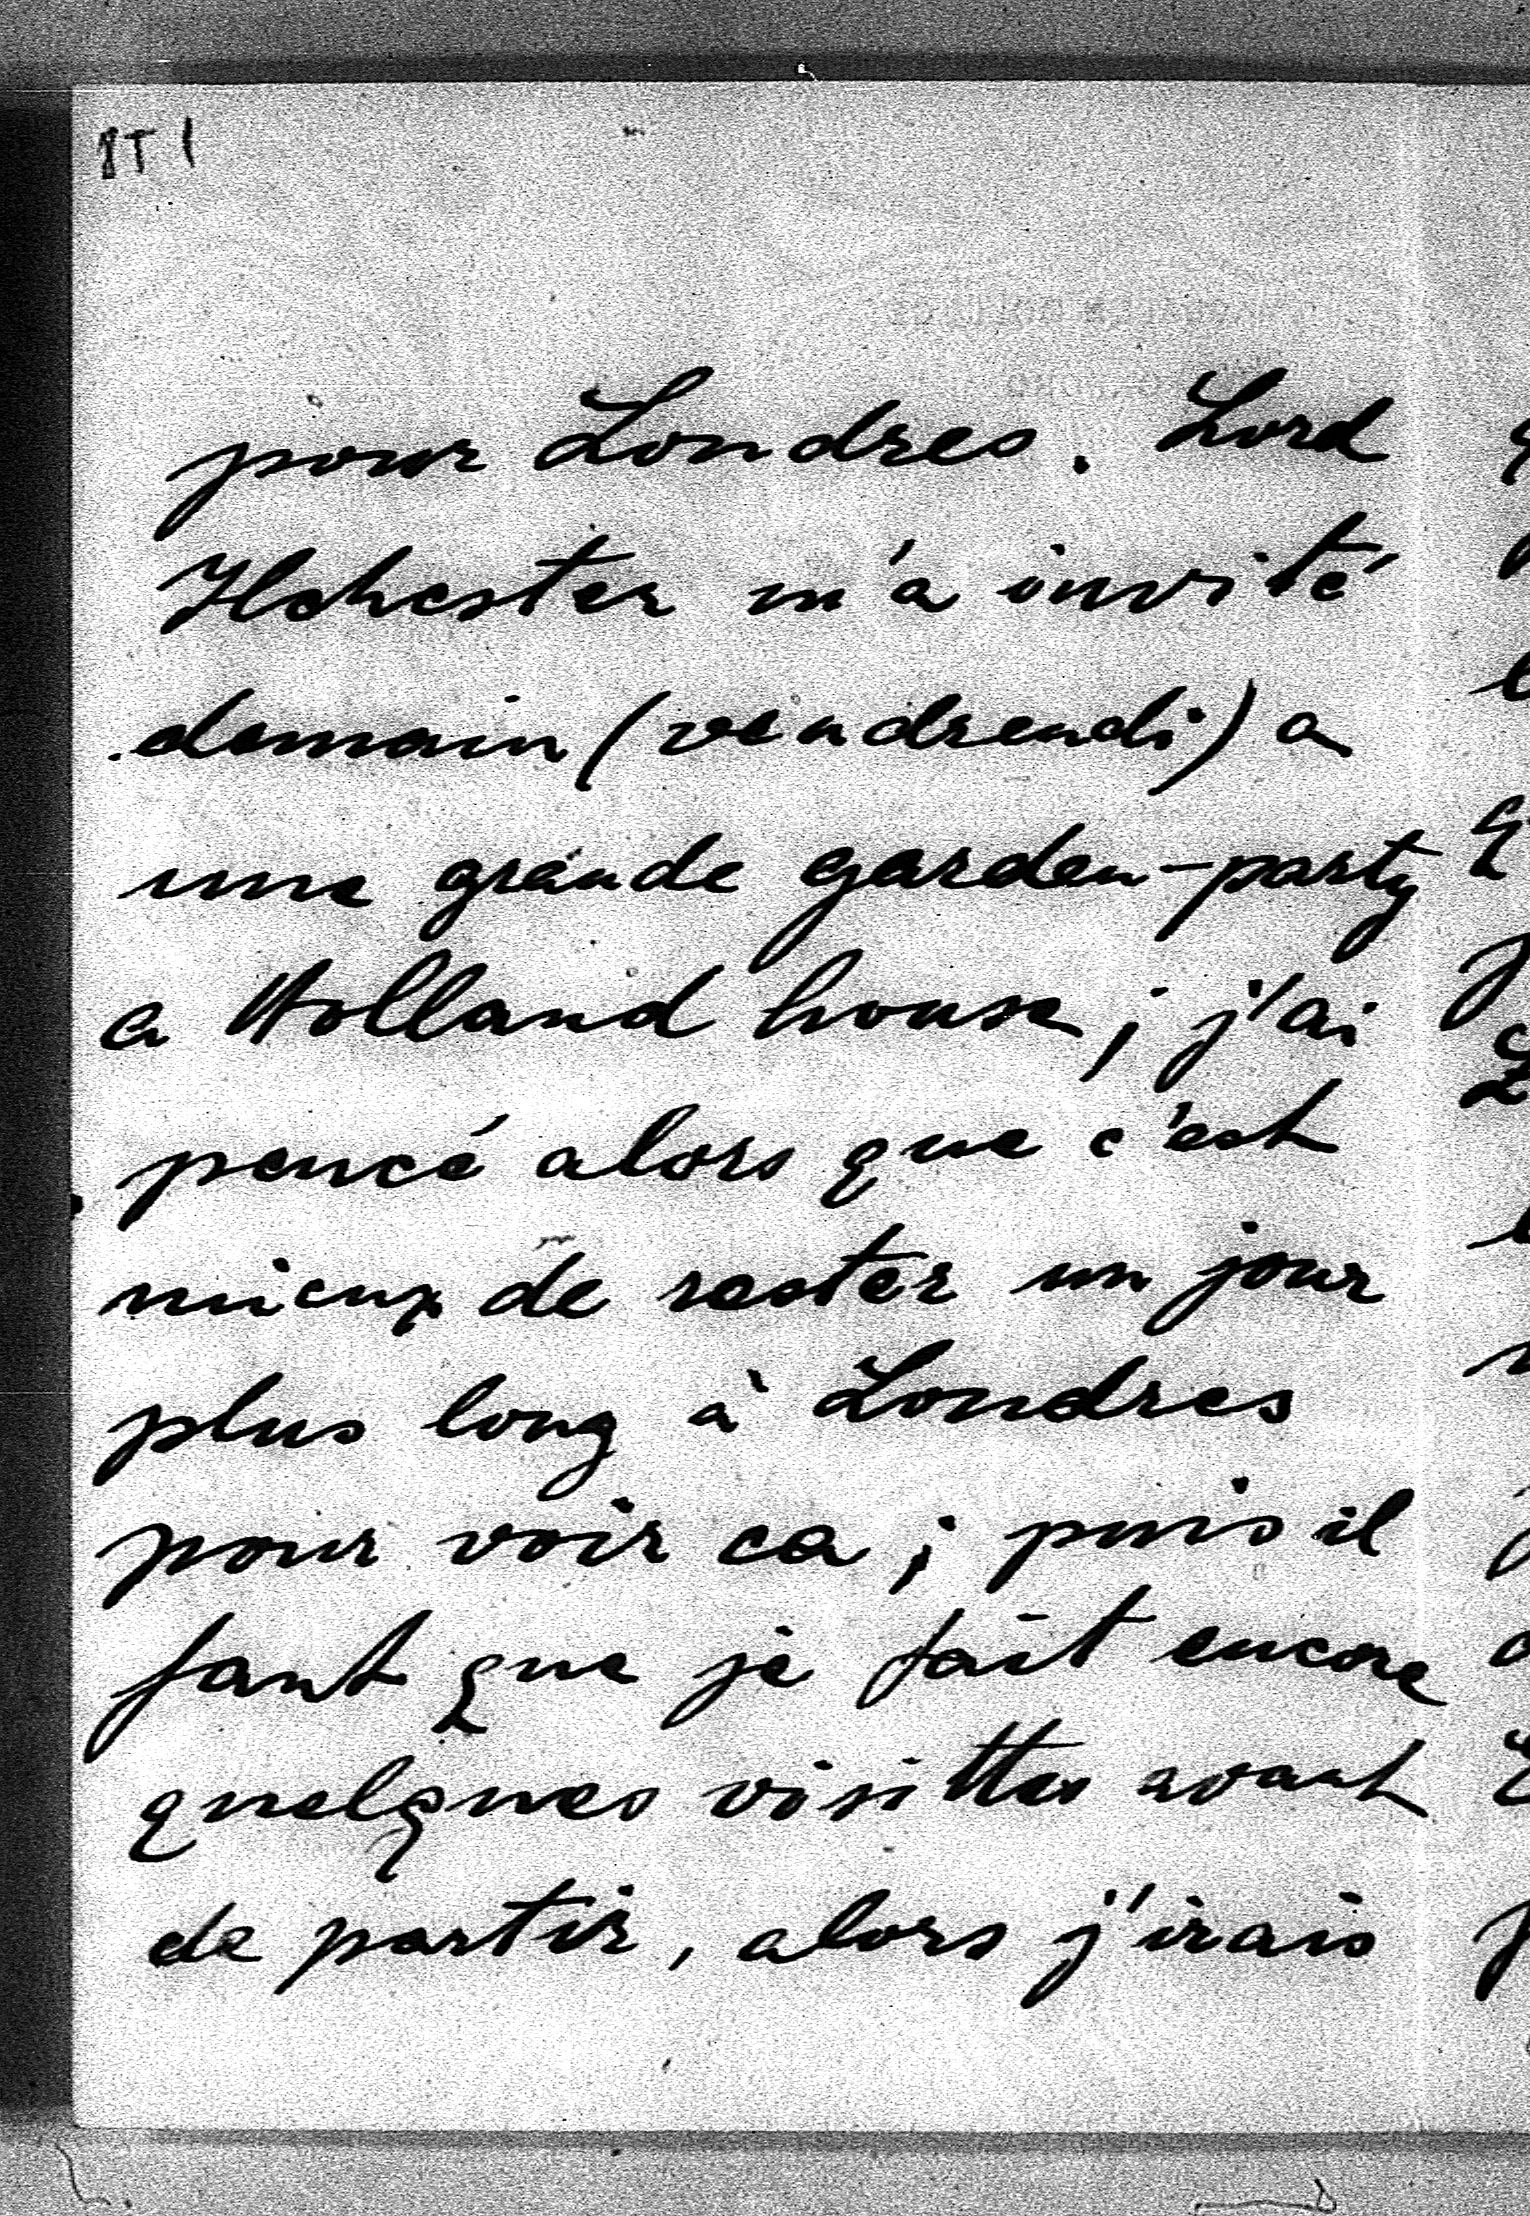 pour Londres. Lord
Ilchester m'a invité
demain (vendrendi) a
une grande garden-party
a Holland house; j'ai
pencé alors que c'est
mieux de rester un jour
plus long à Londres
pour voir ca; puis il
faut que je fait encore
quelques visittes avant
de partir, alors j'irais